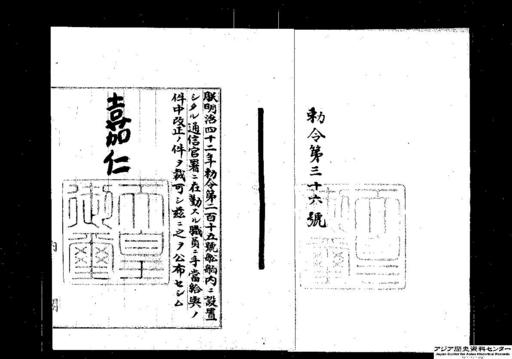 勅令第三十六號
朕明治四十二年勅令第二百十五號船舶內ニ設置
シタル通信官署ニ在勤スル職員ニ手當給與ノ
件中改正ノ件ヲ裁可シ茲ニ之ヲ公布セシム
嘉仁
天皇
御璽
內閣
アジア歴史資料センター
Japan Center for Asian Historical Records